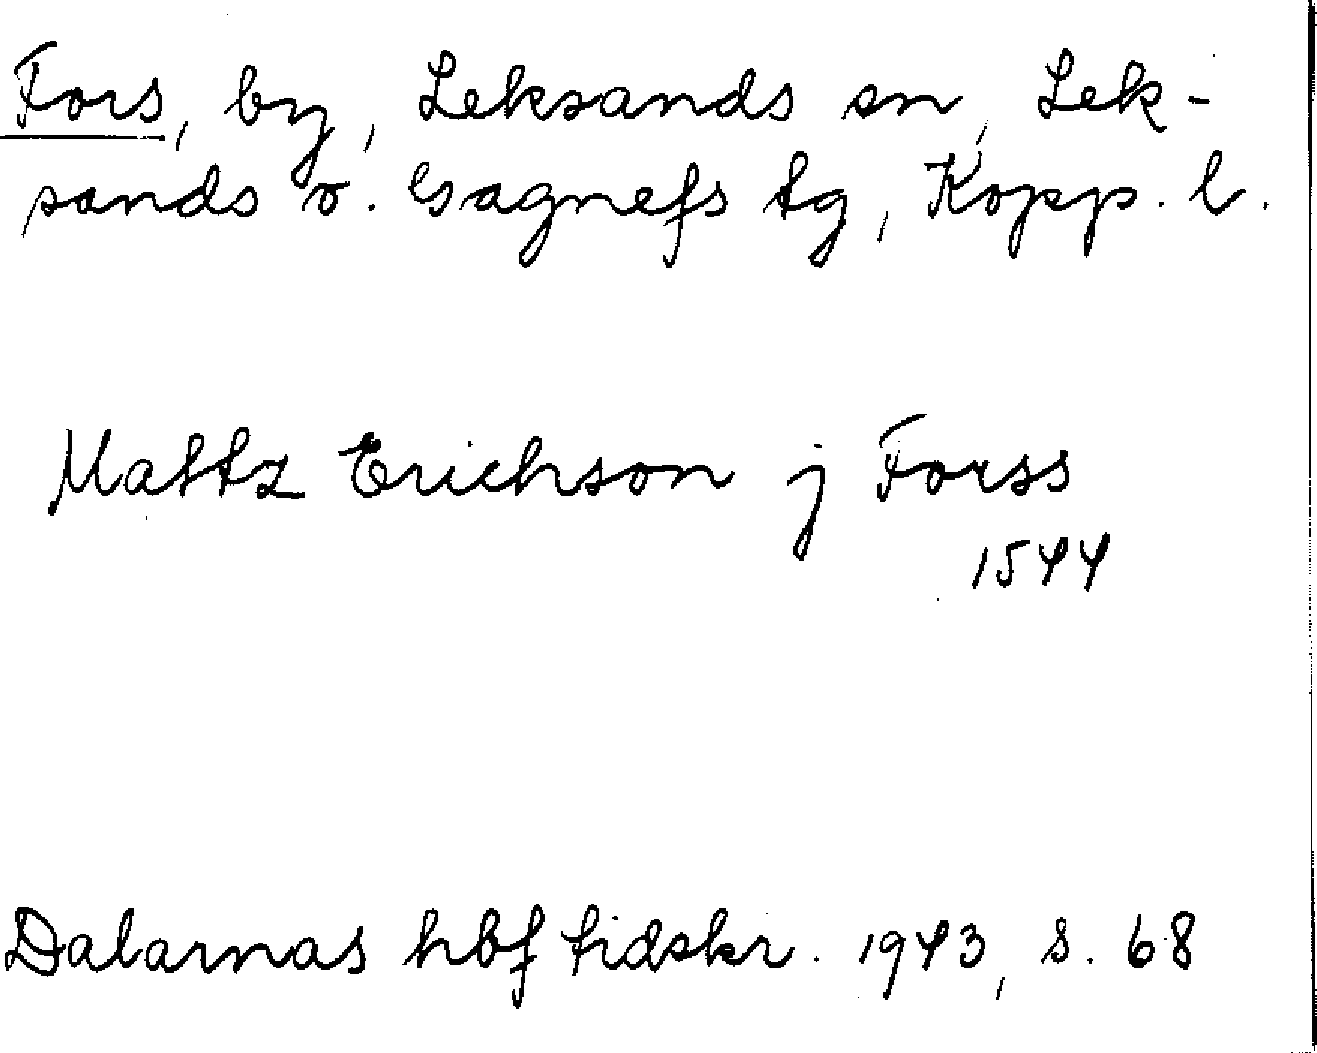 Fors, by, Leksands sn, Lek-
sands o. Gagnefs tg, Kopp. l.
Mattz Erichson j Forss
1544
Dalarnas hbf tidskr. 1943, s. 68